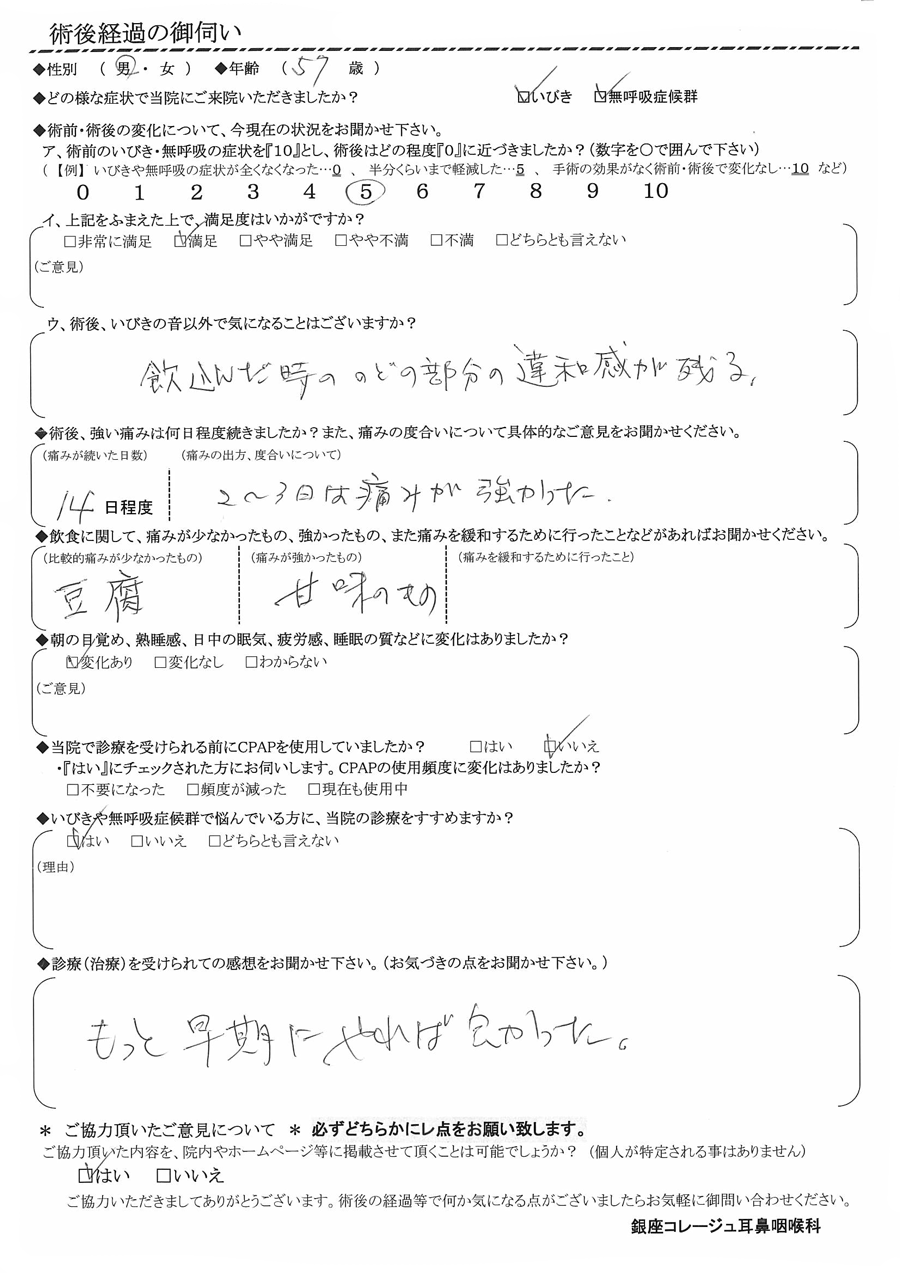 術後経過の御伺い
◆性別 （ 男 ・ 女 ） ◆年齢 （ 57 歳 ）
◆どの様な症状で当院にご来院いただきましたか？ ☑いびき ☑無呼吸症候群
◆術前・術後の変化について、今現在の状況をお聞かせ下さい。
ア、術前のいびき・無呼吸の症状を『10』とし、術後はどの程度『0』に近づきましたか？（数字を○で囲んで下さい）
（ 【例】 いびきや無呼吸の症状が全くなくなった…0 、 半分くらいまで軽減した…5 、 手術の効果がなく術前・術後で変化なし…10 など）
0 1 2 3 4 5 6 7 8 9 10
イ、上記をふまえた上で、満足度はいかがですか？
□非常に満足 ☑満足 □やや満足 □やや不満 □不満 □どちらとも言えない
（ご意見）
ウ、術後、いびきの音以外で気になることはございますか？
飲込んだ時の のどの部分の違和感が残る。
◆術後、強い痛みは何日程度続きましたか？また、痛みの度合いについて具体的なご意見をお聞かせください。
（痛みが続いた日数） （痛みの出方、度合いについて）
14 日程度 2～3日は痛みが強かった.
◆飲食に関して、痛みが少なかったもの、強かったもの、また痛みを緩和するために行ったことなどがあればお聞かせください。
（比較的痛みが少なかったもの） （痛みが強かったもの） （痛みを緩和するために行ったこと）
豆腐 甘味のもの
◆朝の目覚め、熟睡感、日中の眠気、疲労感、睡眠の質などに変化はありましたか？
☑変化あり □変化なし □わからない
（ご意見）
◆当院で診療を受けられる前にCPAPを使用していましたか？ □はい ☑いいえ
・『はい』にチェックされた方にお伺いします。CPAPの使用頻度に変化はありましたか？
□不要になった □頻度が減った □現在も使用中
◆いびきや無呼吸症候群で悩んでいる方に、当院の診療をすすめますか？
☑はい □いいえ □どちらとも言えない
（理由）
◆診療（治療）を受けられての感想をお聞かせ下さい。（お気づきの点をお聞かせ下さい。）
もっと早期にやれば良かった。
＊ ご協力頂いたご意見について ＊ 必ずどちらかにレ点をお願い致します。
ご協力頂いた内容を、院内やホームページ等に掲載させて頂くことは可能でしょうか？ （個人が特定される事はありません）
☑はい □いいえ
ご協力いただきましてありがとうございます。術後の経過等で何か気になる点がございましたらお気軽に御問い合わせください。
銀座コレージュ耳鼻咽喉科